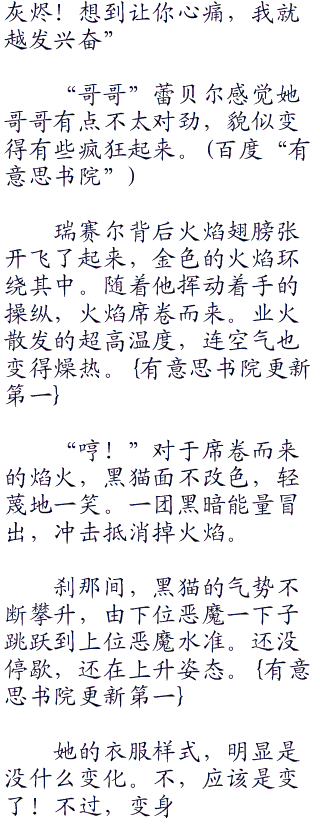 灰烬！想到让你心痛，我就
越发兴奋”
“哥哥”蕾贝尔感觉她
哥哥有点不太对劲，貌似变
得有些疯狂起来。(百度“有
意思书院”)
瑞赛尔背后火焰翅膀张
开飞了起来，金色的火焰环
绕其中。随着他挥动着手的
操纵，火焰席卷而来。业火
散发的超高温度，连空气也
变得燥热。{有意思书院更新
第一}
“哼！”对于席卷而来
的焰火，黑猫面不改色，轻
蔑地一笑。一团黑暗能量冒
出，冲击抵消掉火焰。
刹那间，黑猫的气势不
断攀升，由下位恶魔一下子
跳跃到上位恶魔水准。还没
停歇，还在上升姿态。{有意
思书院更新第一}
她的衣服样式，明显是
没什么变化。不，应该是变
了！不过，变身